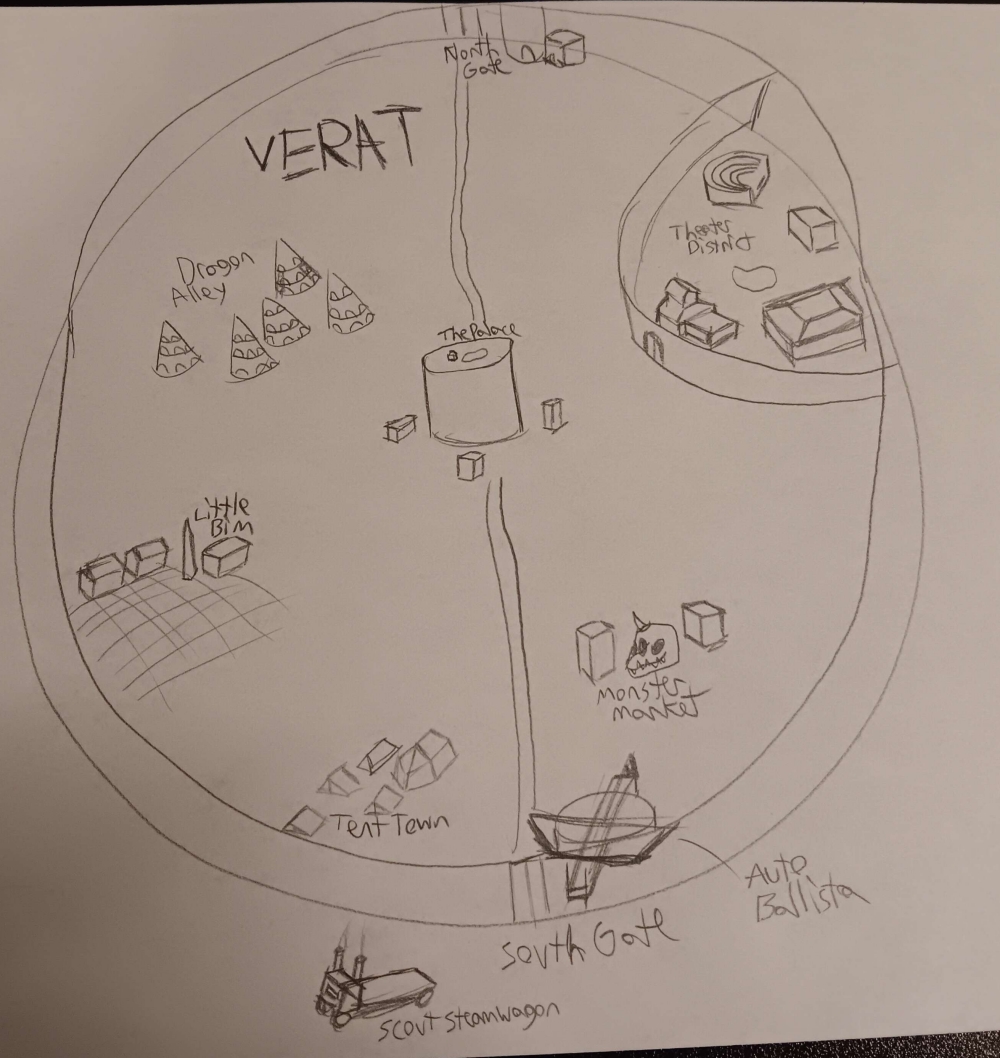 North
Gate
VERAT
Theater
District
Dragon
Alley
The Palace
Little
Bim
Monster
Market
Tent Town
Auto
Ballista
South Gate
Scout Steamwagon